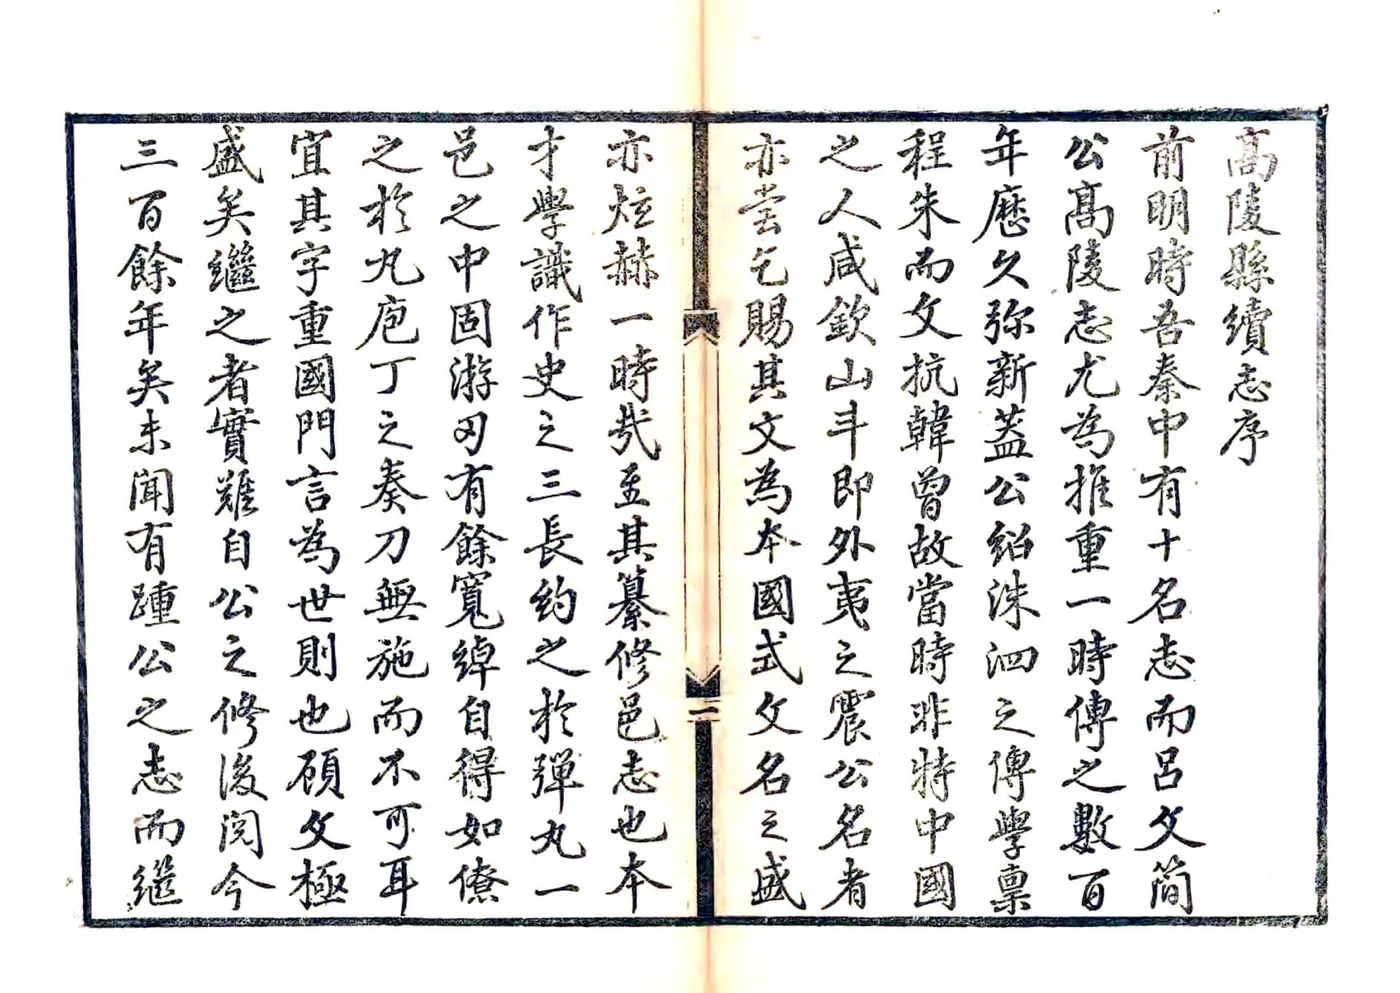 高陵縣續志序
前明時吾秦中有十名志而呂文簡
公高陵志尤為推重一時傳之數百
年歷久弥新蓋公紹洙泗之傳學稟
程朱而文抗韓曾故當時非特中國
之人咸欽山斗即外夷之震公名者
亦嘗乞賜其文為本國式文名之盛
一
亦炫赫一時哉至其纂修邑志也本
才學識作史之三長約之於彈丸一
邑之中固游刃有餘寬綽自得如僚
之於丸庖丁之奏刀無施而不可耳
宜其字重國門言為世則也顧文極
盛矣繼之者實難自公之修後閱今
三百餘年矣未聞有踵公之志而繼